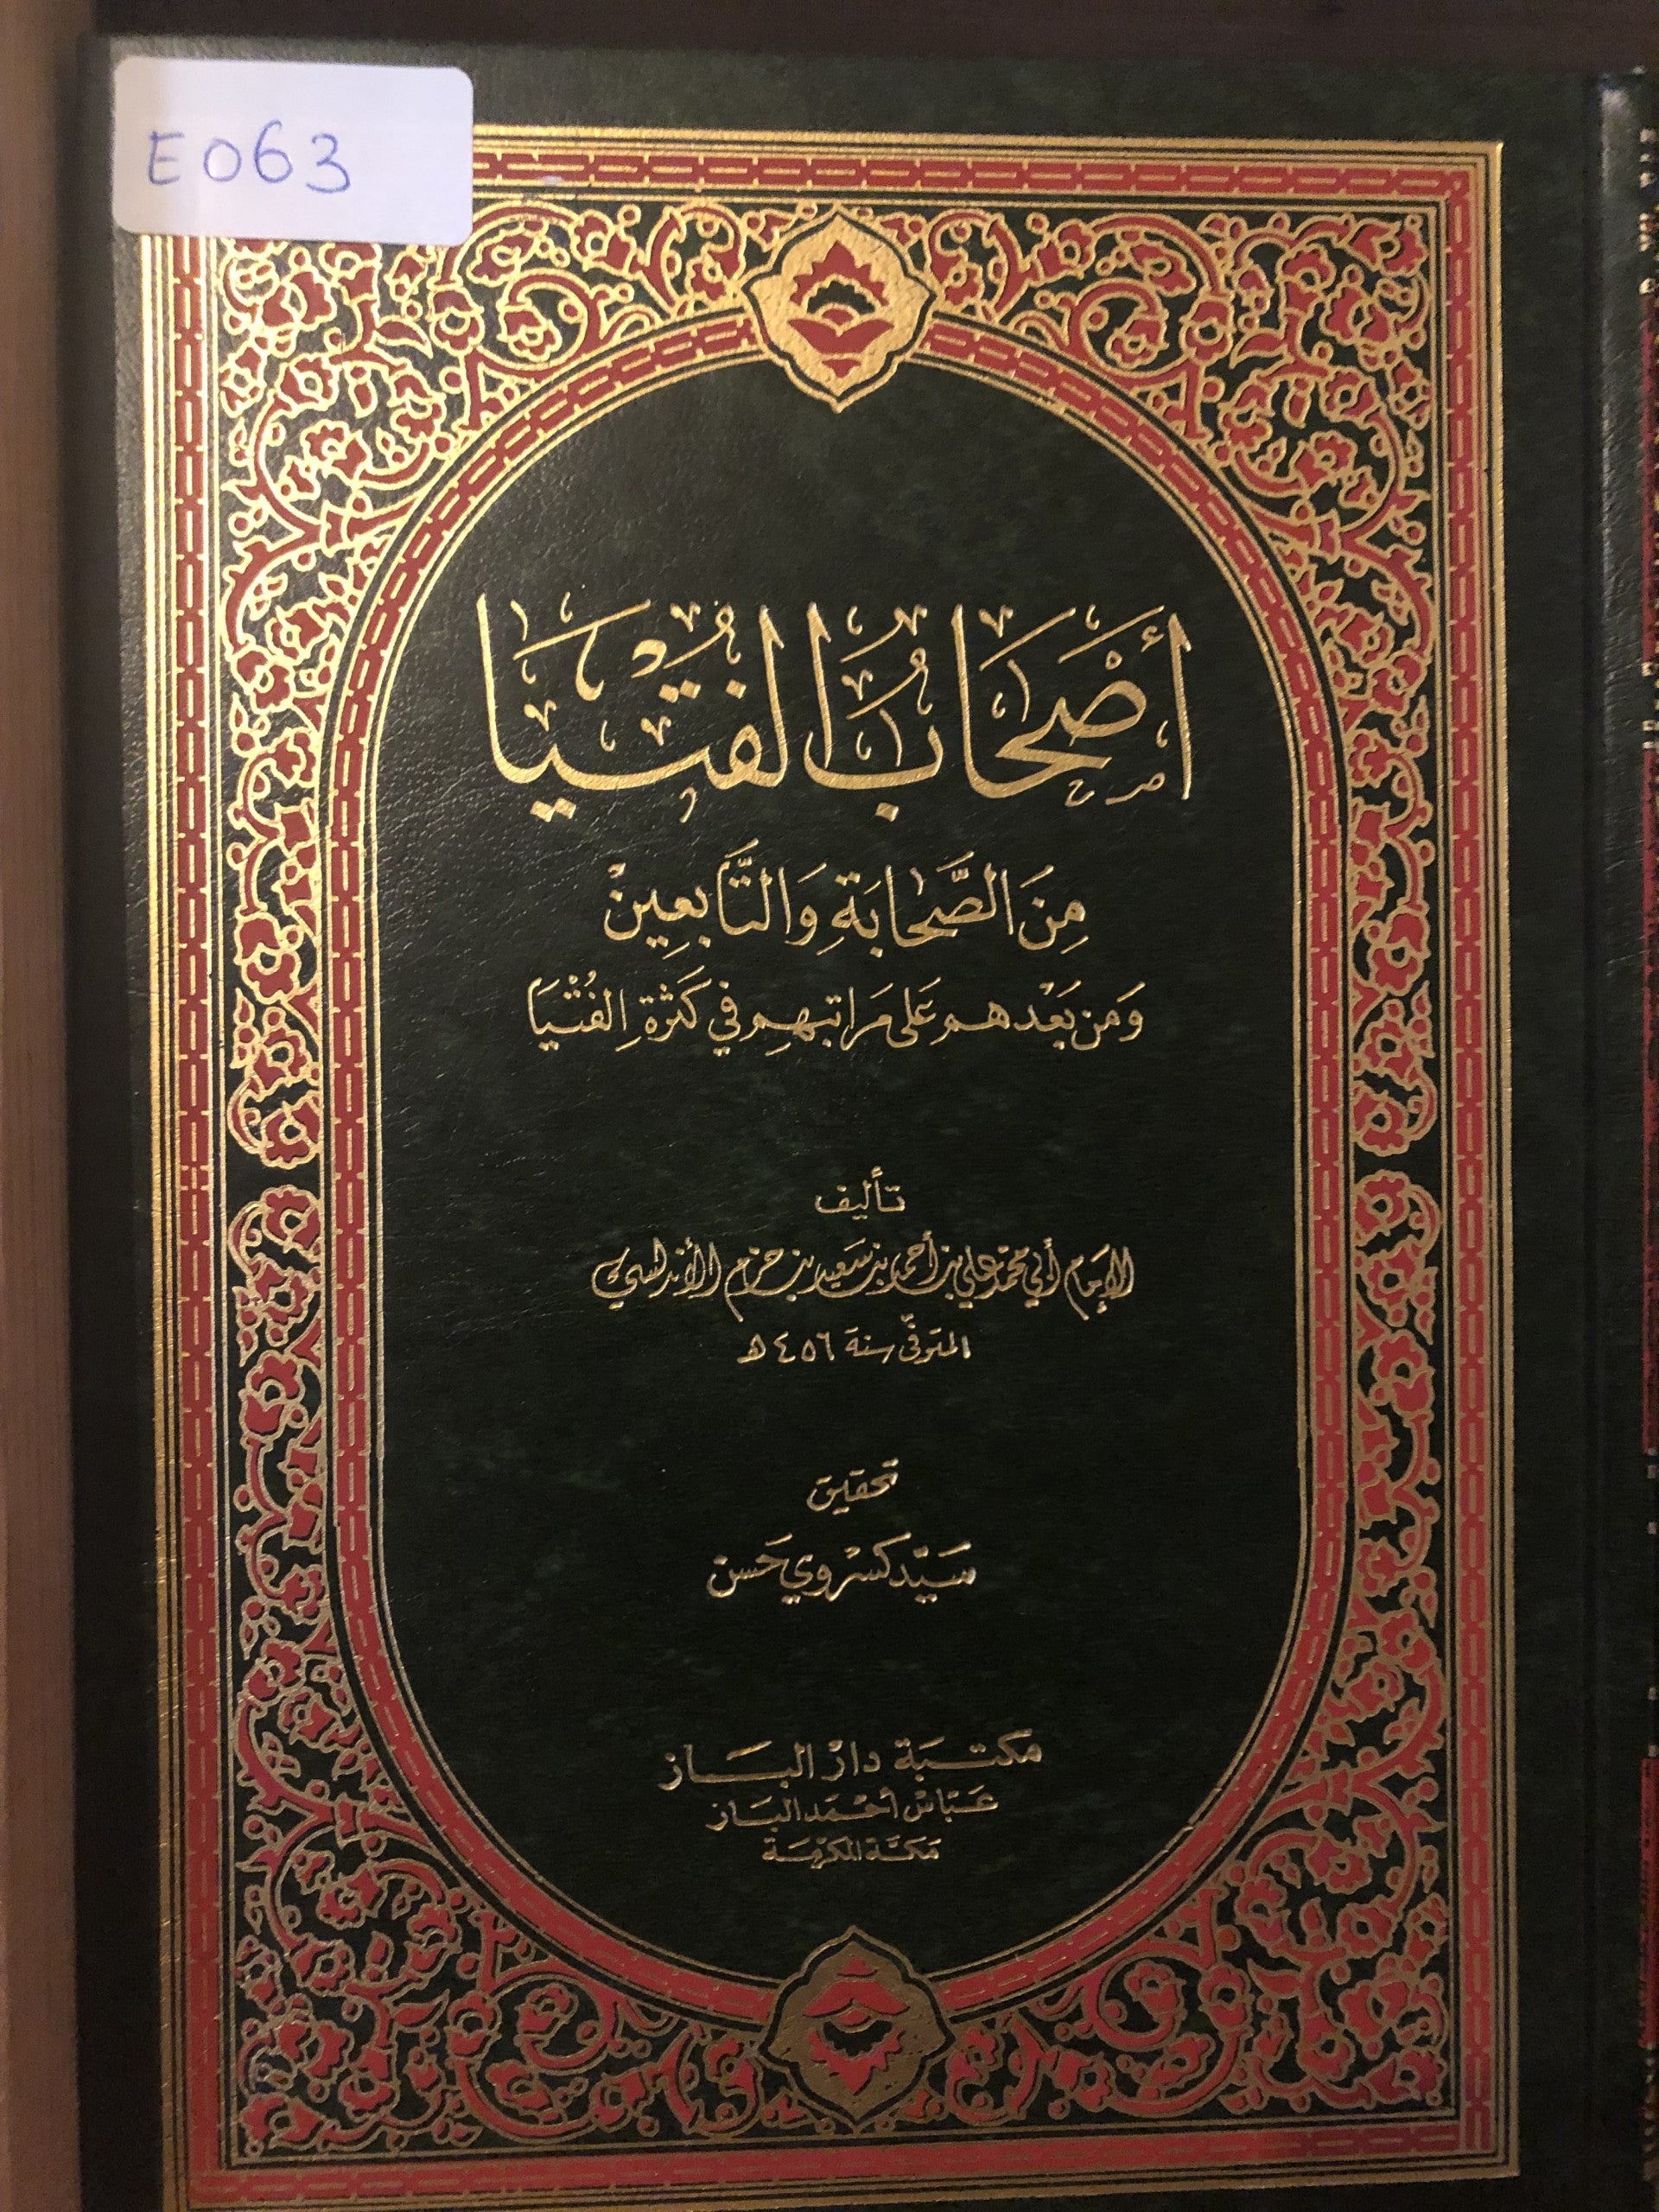 E063
أَصْحَابُ الفُتْيَا
مِنَ الصَّحَابَةِ وَالتَّابِعِينْ
وَمَن بَعْدهم عَلى مَراتبهِم في كَثرةِ الفُتْيَا
تأليف
الإمَام أبي محمّد علي بن أحمد بن سَعيد بن حزم الأندلسي
المتوفى سنة ٤٥٦ هـ
تحقيق
سَيّد كسْروي حَسن
مكتبَة دار البَاز
عَبّاس أحْمَد البَاز
مَكة المكرمَة